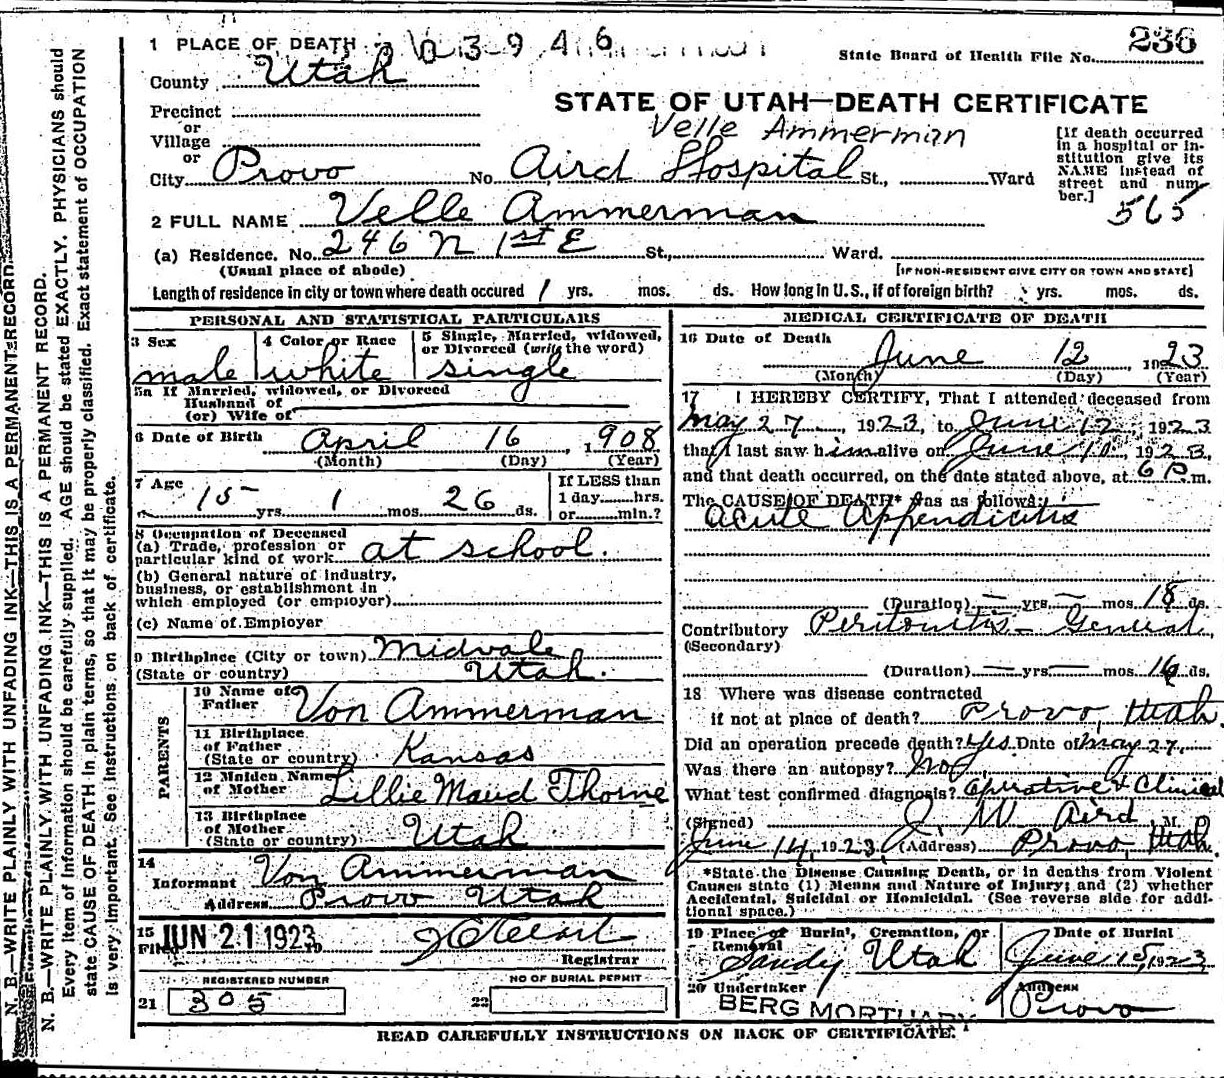 N. B.—WRITE PLAINLY WITH UNFADING INK—THIS IS A PERMANENT RECORD.
N. B.—WRITE PLAINLY, WITH UNFADING INK—THIS IS A PERMANENT RECORD.
Every item of information should be carefully supplied. AGE should be stated EXACTLY. PHYSICIANS should
state CAUSE OF DEATH in plain terms, so that it may be properly classified. Exact statement of OCCUPATION
is very important. See instructions on back of certificate.
1 PLACE OF DEATH 3 9 4 6
State Board of Health File No. 236
County Utah
STATE OF UTAH—DEATH CERTIFICATE
Precinct
or
Village
or
Velle Ammerman
City Provo No. Aird Hospital St., Ward
[If death occurred
in a hospital or in-
stitution give its
NAME instead of
street and num-
ber.]
565
2 FULL NAME Velle Ammerman
(a) Residence. No. 246 N 1st E St., Ward.
(Usual place of abode) [IF NON-RESIDENT GIVE CITY OR TOWN AND STATE]
Length of residence in city or town where death occured 1 yrs. mos. ds. How long in U.S., if of foreign birth? yrs. mos. ds.
PERSONAL AND STATISTICAL PARTICULARS
3 Sex male
4 Color or Race white
5 Single, Married, widowed,
or Divorced (write the word)
single
5a If Married, widowed, or Divorced
Husband of
(or) Wife of
6 Date of Birth April 16, 1908
(Month) (Day) (Year)
7 Age 15 yrs. 1 mos. 26 ds.
If LESS than
1 day hrs.
or min.?
8 Occupation of Deceased
(a) Trade, profession or
particular kind of work at school.
(b) General nature of industry,
business, or establishment in
which employed (or employer)
(c) Name of Employer
9 Birthplace (City or town) Midvale
(State or country) Utah.
PARENTS
10 Name of
Father Von Ammerman
11 Birthplace
of Father
(State or country) Kansas
12 Maiden Name
of Mother Lillie Maud Thorne
13 Birthplace
of Mother
(State or country) Utah
14
Informant Von Ammerman
Address Provo Utah
15
Filed JUN 21 1923 19
Registrar
REGISTERED NUMBER
21 305
NO OF BURIAL PERMIT
22
MEDICAL CERTIFICATE OF DEATH
16 Date of Death
June 12, 1923
(Month) (Day) (Year)
17 I HEREBY CERTIFY, That I attended deceased from
May 27, 1923, to June 12, 1923
that I last saw him alive on June 1923,
and that death occurred, on the date stated above, at 6 P. m.
The CAUSE OF DEATH* was as follows:
Acute Appendicitis
(Duration) — yrs. — mos. 18 ds.
Contributory Peritonitis—General
(Secondary)
(Duration) — yrs. — mos. ds.
18 Where was disease contracted
if not at place of death? Provo, Utah.
Did an operation precede death? Yes. Date of May 27.
Was there an autopsy? No
What test confirmed diagnosis? Operative & Clinical
(Signed) J. W. Aird, M. D
June 14, 1923, (Address) Provo, Utah.
*State the Disease Causing Death, or in deaths from Violent
Causes state (1) Means and Nature of Injury; and (2) whether
Accidental, Suicidal or Homicidal. (See reverse side for addi-
tional space.)
19 Place of Burial, Cremation, or
Removal
Sandy Utah
Date of Burial
June 15, 1923
20 Undertaker
BERG MORTUARY
Address
Provo
READ CAREFULLY INSTRUCTIONS ON BACK OF CERTIFICATE.